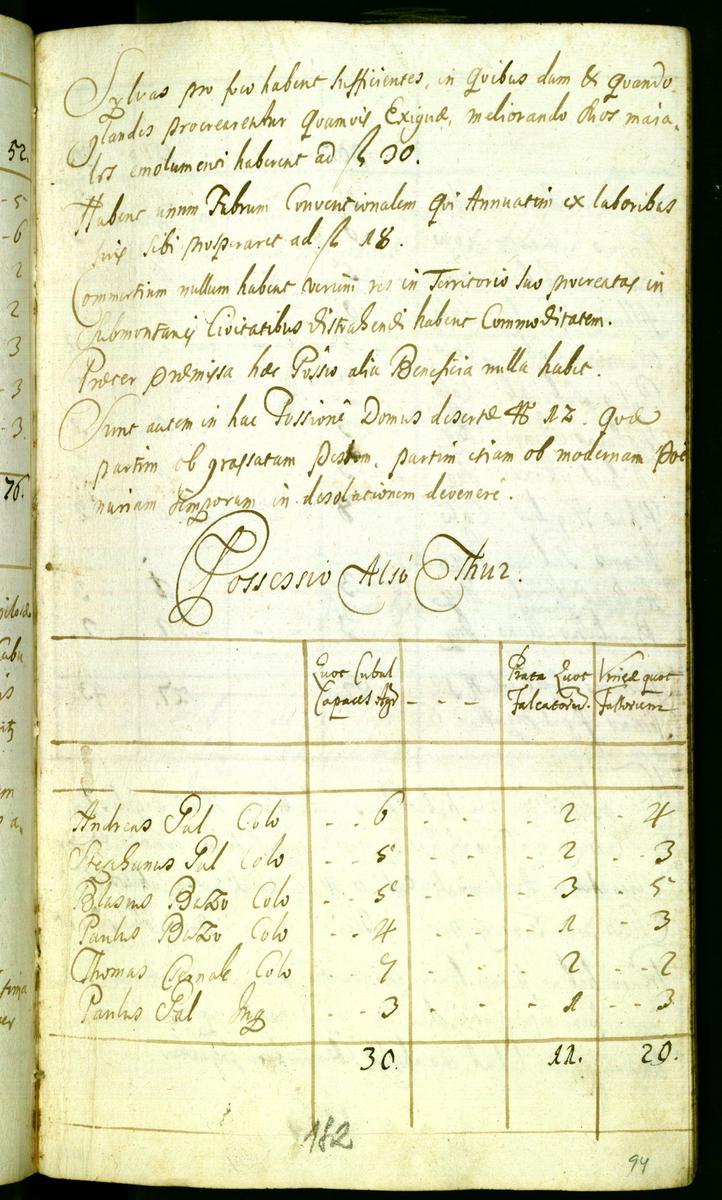 Sylvas pro foco habent sufficientes, in quibus dum & quando
glandes procrearentur quamvis Exiguæ, meliorando suos maia-
les emolumenti haberent ad fl 30.
Habent unum Fabrum Conventionalem qui Annuatim ex laboribus
suis sibi prosperaret ad fl 18.
Commertium nullum habent verum res in Territorio suo procreatas in
Submontanis Civitatibus distrahendi habent Commoditatem.
Præter præmissa hæc Possio alia Beneficia nulla habet.
Sunt autem in hac Possione Domus desertæ No 12. quæ
partim ob grassatam Pestem, partim etiam ob modernam Poe
nuriam temporum in desolationem devenere.
Possessio Alsó Thur.
Quot Cubul Prata Quot Vineæ quot
Capaces Agr - - - Falcatorum. Fossorum
Andreas Pal Colo - - 6 - - - 2 - 4
Stephanus Pal Colo - - 5 - - - 2 - - 3
Blasius Bazo Colo - - 5 - - - 3 - - 5
Paulus Bazo Colo - - 4 - - - 1 - - 3
Thomas Csernak Colo - - 7 - - - 2 - - 2
Paulus Pal Inq - - 3 - - - 1 - - 3
30. 11. 20.
182
94
52.
- 5
- 6
2
2
3
- 3
- 3.
76.